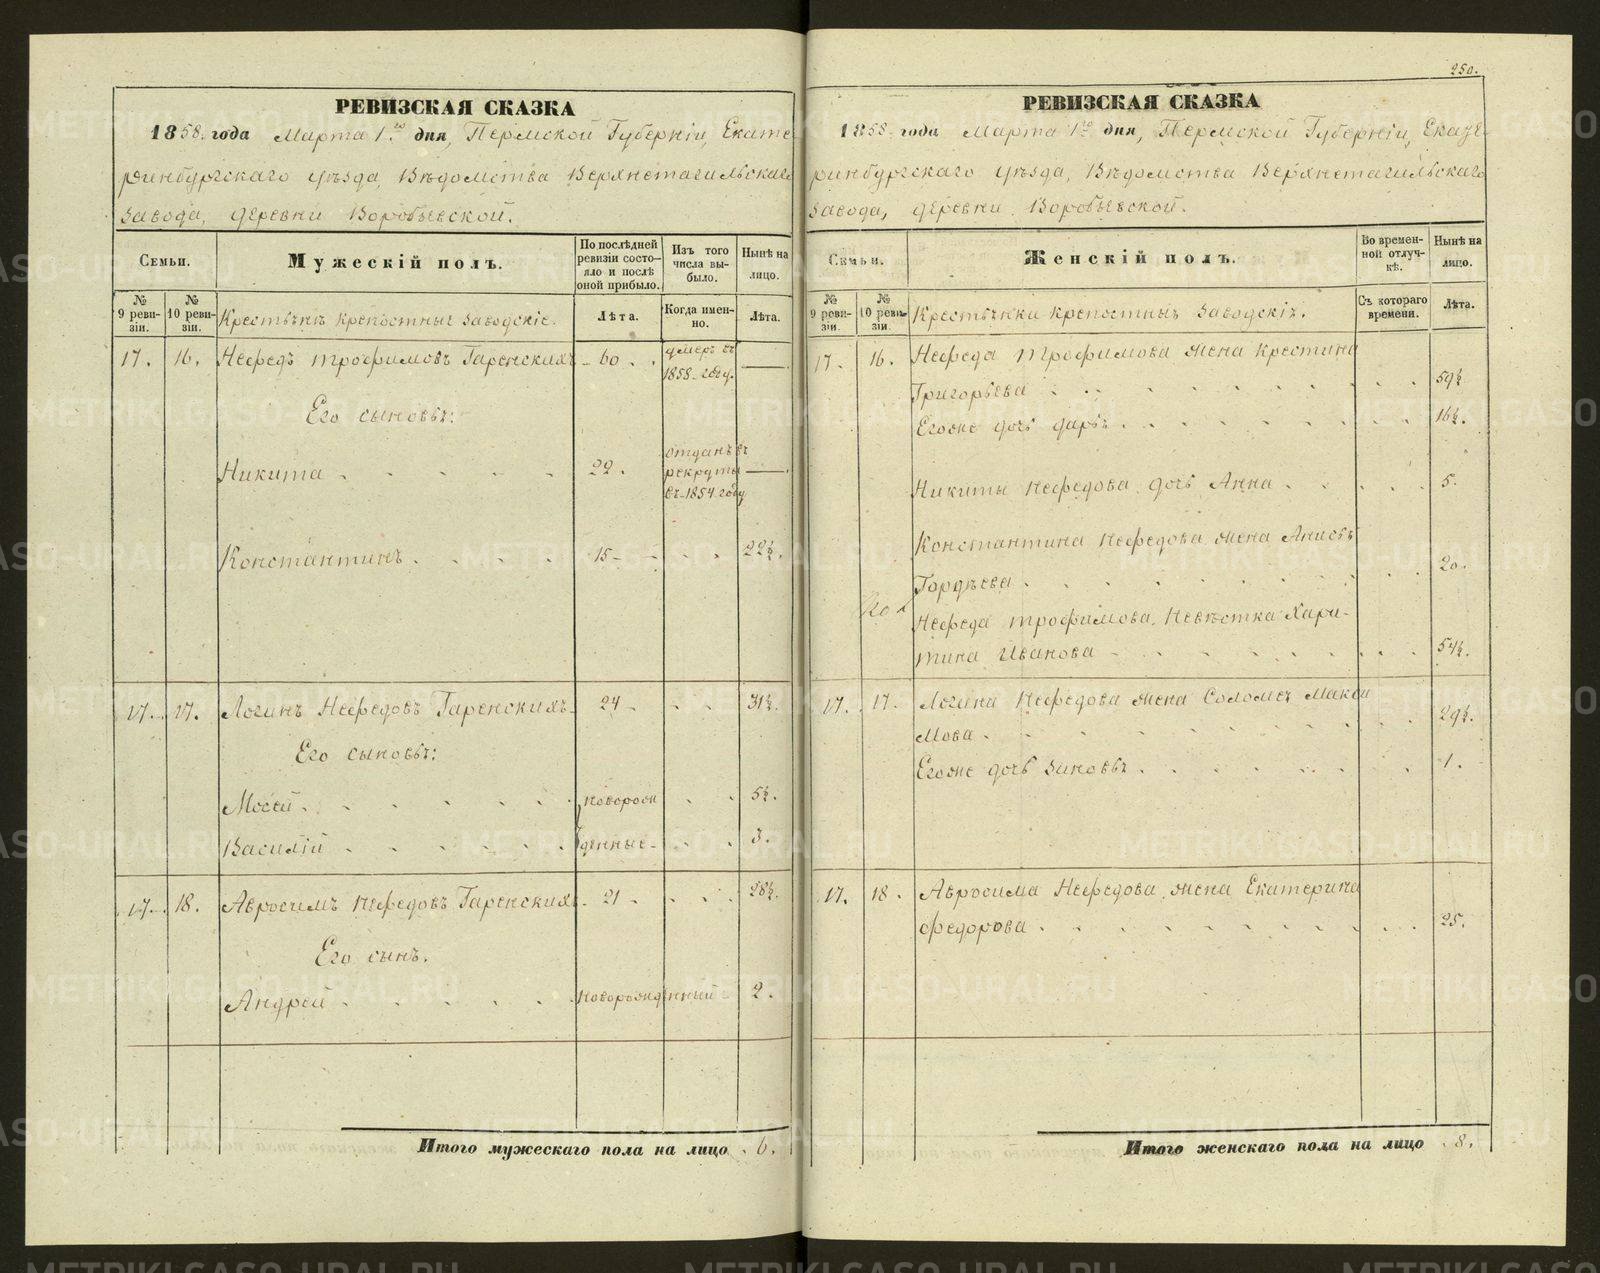 РЕВИЗСКАЯ СКАЗКА
1858. года Марта 1го дня, Пермской Губернiи, Екате-
ринбургскаго уѣзда, Вѣдомства Верхнетагильскаго
завода, деревни Воробьевской.
Семьи.
Мужескiй полъ.
По послѣдней ревизiи состо-яло и послѣ оной прибыло.
Изъ того числа вы-было.
Нынѣ на лицо.
№ 9 реви-зiи.
№ 10 реви-зiи.
Крестьяне крепостные заводскiе.
Лѣта.
Когда имен-но.
Лѣта.
17. 16. Нефедъ Трофимовъ Гаренскихъ - 60 . . умеръ въ 1858 году. —
Его сыновья:
Никита . . . . . 22. отданъ въ рекруты въ 1854 году —
Константинъ . . . . 15 - . . 22½.
17. 17. Логинъ Нефедовъ Гаренскихъ - 24 . . . 31½.
Его сыновья:
Мосей . . . . . . новорож . . 5½.
Василiй . . . . . . денные - . . 3.
17. 18. Авросимъ Нефедовъ Гаренскихъ - 21 . . . 28½.
Его сынъ.
Андрей . . . . . новорожденный - 2.
Итого мужескаго пола на лицо . 6.
250.
РЕВИЗСКАЯ СКАЗКА
1858. года Марта 1го дня, Пермской Губернiи, Екате-
ринбургскаго уѣзда, Вѣдомства Верхнетагильскаго
завода, деревни Воробьевской.
Семьи.
Женскiй полъ.
Во времен-ной отлуч-кѣ.
Нынѣ на лицо.
№ 9 реви-зiи.
№ 10 реви-зiи.
Крестьянки крепостныя заводскiя.
Съ котораго времени.
Лѣта.
17. 16. Нефеда Трофимова жена Крестина
Григорьева . . . . . . . . 59½
Егоже дочь Дарья . . . . . . . 16½.
Никиты Нефедова дочь Анна . . . . . 5.
Константина Нефедова жена Анисья
Гордѣева . . . . . . . . 20.
Нефеда Трофимова, Невѣстка Хари-
тина Иванова - . . . . . . . 54½.
17. 17. Логина Нефедова жена Соломея Макси
мова . . . . . . . . . 29½.
Егоже дочь Зиновья . . . . . . 1.
17. 18. Авросима Нефедова жена Екатерина
Федорова . . . . . . . . . 25.
Итого женскаго пола на лицо . 8.
METRIKI.GASO-URAL.RU